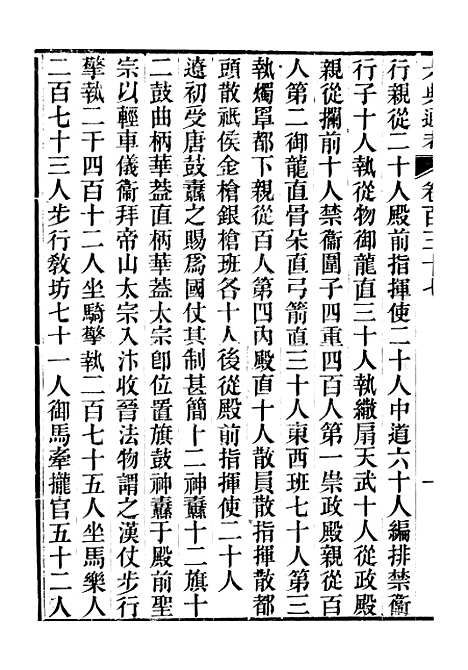 行親從二十人殿前指揮使二十人中道六十人編排禁衞
行子十人執從物御龍直三十人執繖扇天武十人從政殿
親從攔前十人禁衞圍子四重四百人第一崇政殿親從百
人第二御龍直骨朵直弓箭直三十人東西班七十人第三
執燭罩都下親從百人第四內殿直十人散員散指揮散都
頭散祇侯金槍銀槍班各十人後從殿前指揮使二十人
遼初受唐鼓纛之賜爲國仗其制甚簡十二神纛十二旗十
二鼓曲柄華葢直柄華葢太宗卽位置旗鼓神纛于殿前聖
宗以輕車儀衞拜帝山太宗入汴收晉法物謂之漢仗步行
擎執二千四百十二人坐騎擎執二百七十五人坐馬樂人
二百七十三人步行敎坊七十一人御馬牽攏官五十二人